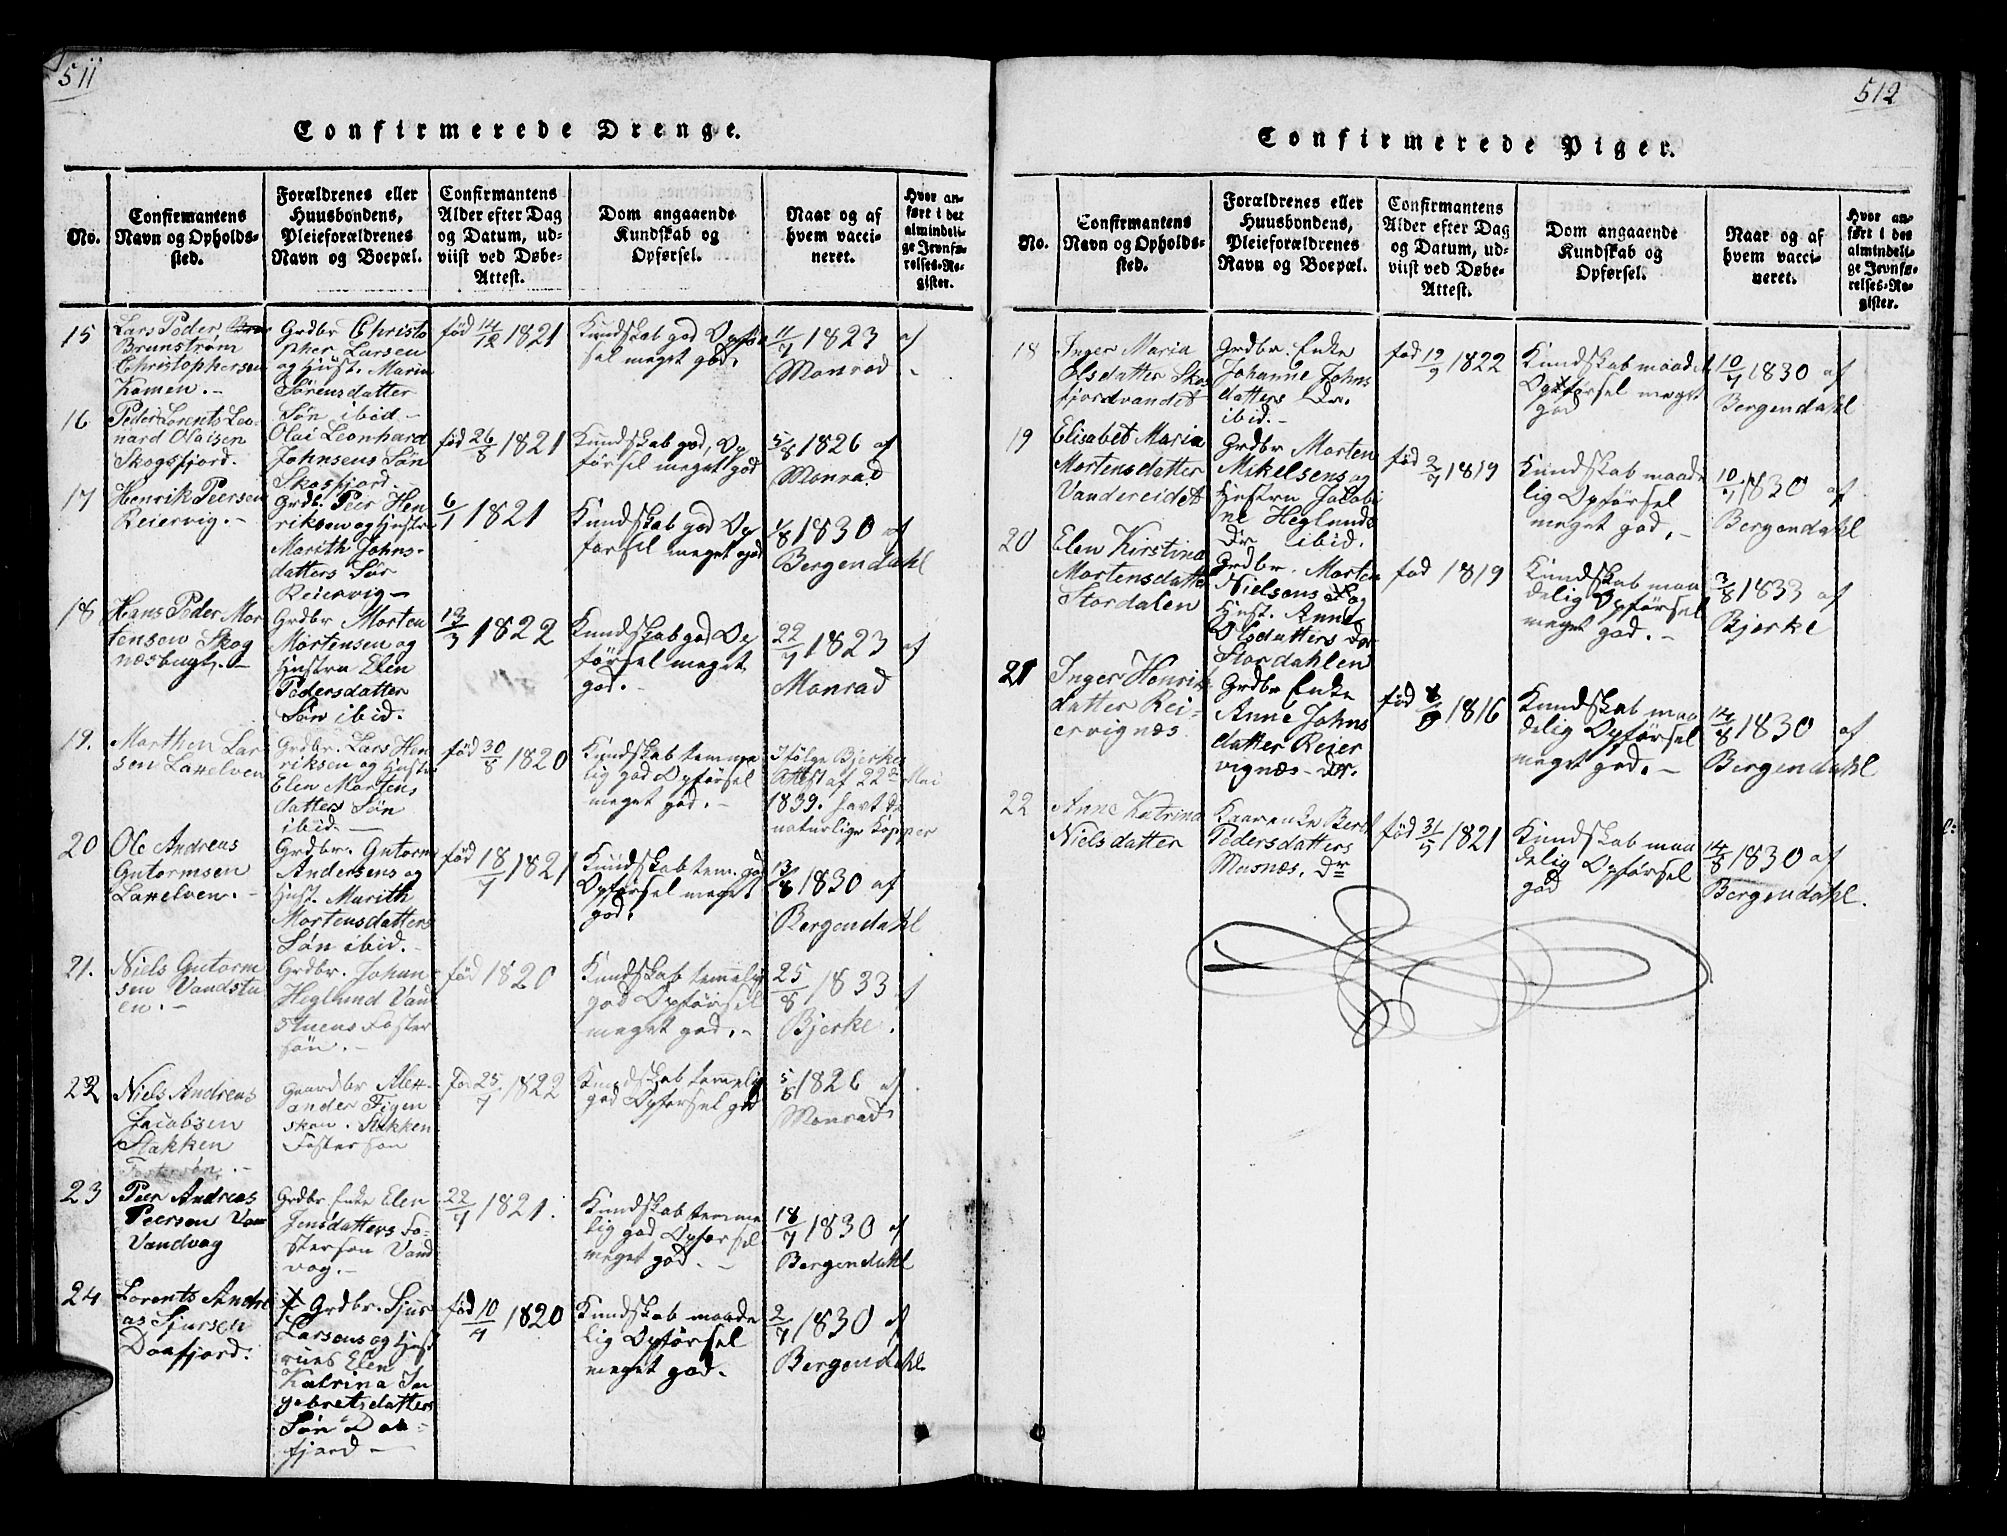 511
Confirmerede Drenge.
No.
Confirmantens
Navn og Opholds-
sted.
Forældrenes eller
Huusbondens,
Pleieforældrenes
Navn og Boepæl.
Confirmantens
Alder efter Dag
og Datum, ud-
viist ved Døbe-
Attest.
Dom angaaende
Kundskab og
Opførsel.
Naar og af
hvem vacci-
neret.
Hvor an-
ført i det
almindeli-
ge Jevnfø-
relses-Re-
gister.
15
Lars Peder
Brunstrøm
Christophersen
Kamen. -
Grdbr Christo
pher Larsen
og Hust. Maria
Sørensdatter
Søn ibid -
fød 14/12 1821
Kundskab god Opfør
sel meget god.
11/7 1823 af
Monrad -
16
Peder Lorents Leo-
nard Olaisen
Skogsfjord.
Olai Leonhard
Johnsens Søn
Skogfjord.
fød 26/8 1821
Kundskab god, Op
førsel meget god
5/8 1826 af
Monrad
17
Henrik Peersen
Reiervig. -
Grdb. Peer Hen
riksen og Hustr
Marith Johns-
datters Søn
Reiervig -
6/1 1821
Kundskab god Op
førsel meget god
1/8 1830 af
Bergendahl
18
Hans Peder Mor
tensen Skog
næsbugt. -
Grdbr Morten
Mortensen og
Hustru Elen
Pedersdatter
Søn ibid.
13/3 1822
Kundskab god Op
førsel meget
god. -
22/7 1823 af
Monrad
19.
Morthen Lar
sen Laxelven
Grdbr. Lars Hen
riksen og Hustr
Elen Mortens
datters Søn
ibid. -
fød 30/8 1820
Kundskab temme
lig god Opførsel
meget god. -
Ifølge Bjerkes
Attest af 22de Mai
1839. havt de
naturlige Kopper
20
Ole Andreas
Gutormsen
Laxelven. -
Grdbr. Gutorm
Andersens og
Hust. Marith
Mortensdatters
Søn ibid. -
fød 18/7 1821
Kundskab tem. god
Opførsel meget
god.
13/8 1830 af
Bergendahl
21.
Niels Gutorm
sen Vandstu
en. -
Grdbr. Johan
Heglund Van
stuens Foster
søn. -
fød 1820
Kundskab temelig
god Opførsel
meget god. -
25/8 1833 af
Bjerke.
22
Niels Andreas
Jacobsen
Stakken
Fostersøn. -
Gaardbr Alex-
ander Figen
skou. Stakken
Fosterson
Fød 25/7 1822
Kundskab temelig
god Opførsel god
5/8 1826 af
Monrad
23
Peer Andreas
Peersen
Vandvag
Grdbr Enke Elen
Jensdatters Fo-
sterson Vand
vag. -
22/4 1821.
Kundskab temme
lig god Opførsel
meget god. -
18/7 1830 af
Bergendahl
24
Lorents Andre
as Sjursen
Daafjord.
Grdbr. Sjur
Larsens og Hust
rues Elen
Katrina In
gebretsdatters
Søn Daa-
fjord -
fød 10/4 1820
Kundskab maade
lig Opførsel
meget god.
2/7 1830 af
Bergendahl
512
Confirmerede Piger.
No.
Confirmantens
Navn og Opholds-
sted.
Forældrenes eller
Huusbondens,
Pleieforældrenes
Navn og Boepæl.
Confirmantens
Alder efter Dag
og Datum, ud-
viist ved Døbe-
Attest.
Dom angaaende
Kundskab og
Opførsel.
Naar og af
hvem vacci-
neret.
Hvor an-
ført i det
almindeli-
ge Jevnfø-
relses-Re-
gister.
18
Inger Maria
Olsdatter Sko
fjordvandet
Grdbr. Enke
Johanne Johns
datters Dr.
ibid. -
fød 12/9 1822
Kundskab maadel
Opførsel meget
god
10/7 1830 af
Bergendahl
19
Elisabet Maria
Mortensdatter
Vandereidet
Grdbr Morten
Mikelsens og
Hustru Jacobi
ne Heglunds
Dr ibid.
fød 2/7 1819
Kundskab maade
lig Opførsel
meget god. -
10/7 1830 af
Bergendahl
20
Elen Kirstina
Mortensdatter
Stordalen
Grdbr. Morten
Nielsens og
Hust. Anne
Olsdatters Dr
Stordahlen
fød 1819
Kundskab maa
delig Opførsel
meget god. -
3/8 1833 af
Bjerke
21
Inger Henrik
datter Rei-
ervignæs
Grdbr Enke
Anne Johns
datter Reier
vignæs - Dr.
fød 8/9 1816
Kundskab maa
delig Opførsel
meget god. -
14/8 1830 af
Bergendahl
22
Anne Katrina
Nielsdatter
Kaarenke Beret
Pedersdatters
Musnæs. Dr
fød 31/5 1821
Kundskab maa
delig Opførsel
god
14/8 1830 af
Bergendahl.